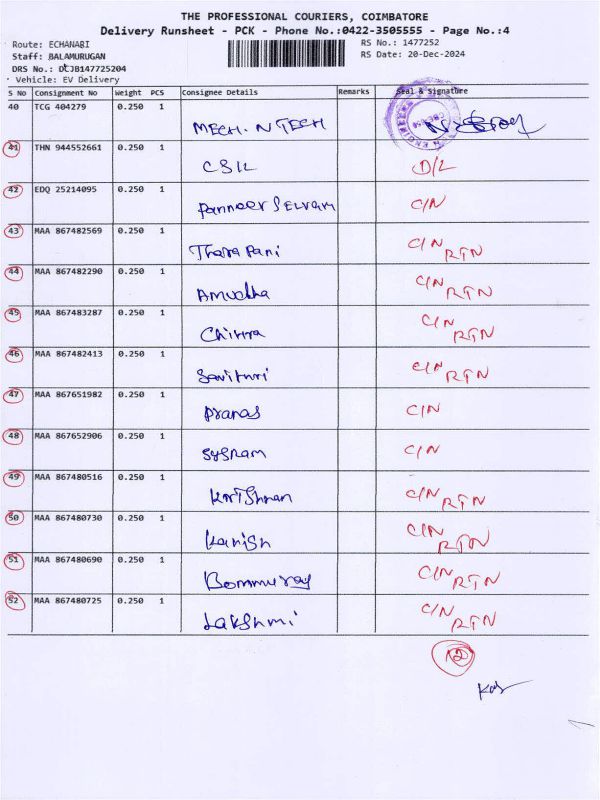 THE PROFESSIONAL COURIERS, COIMBATORE
Delivery Runsheet - PCK - Phone No.:0422-3505555 - Page No.:4
Route: ECHANABI RS No.: 1477252
Staff: BALAMURUGAN RS Date: 20-Dec-2024
DRS No.: DCJB147725204
Vehicle: EV Delivery
S No Consignment No Weight PCS Consignee Details Remarks Seal & Signature
40 TCG 404279 0.250 1 MECH. N TECH
41 THN 944552661 0.250 1 CSIL D/L
42 EDQ 25214095 0.250 1 Panneer Selvam C/N
43 MAA 867482569 0.250 1 Tharapani C/N RTN
44 MAA 867482290 0.250 1 Amudha C/N RTN
45 MAA 867483287 0.250 1 Chitra C/N RTN
46 MAA 867482413 0.250 1 Savithri C/N RTN
47 MAA 867651982 0.250 1 Pranas C/N
48 MAA 867652906 0.250 1 Sysram C/N
49 MAA 867480516 0.250 1 Krrishnan C/N RTN
50 MAA 867480730 0.250 1 Kanish C/N RTN
51 MAA 867480690 0.250 1 Bommuraj C/N RTN
52 MAA 867480725 0.250 1 Lakshmi C/N RTN
12